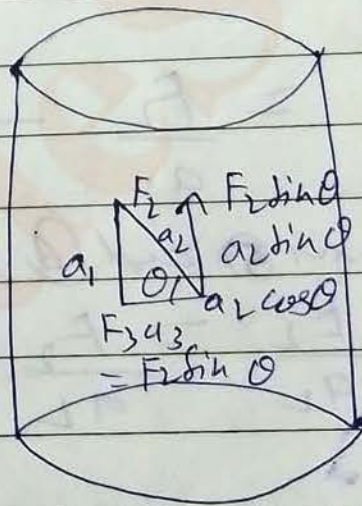 F₂ F₂ sinθ
a₁ a₂ a₂ sinθ
θ a₂ cosθ
F₃ a₃
= F₂ sin θ